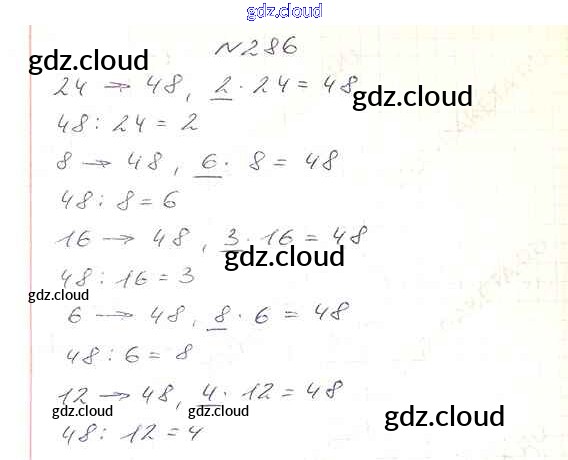 gdz.cloud
№286
gdz.cloud
24 → 48, 2 · 24 = 48
gdz.cloud
48 : 24 = 2
8 → 48, 6 · 8 = 48
48 : 8 = 6
16 → 48, 3 · 16 = 48
gdz.cloud
48 : 16 = 3
gdz.cloud
6 → 48, 8 · 6 = 48
48 : 6 = 8
12 → 48, 4 · 12 = 48
gdz.cloud gdz.cloud gdz.cloud
48 : 12 = 4